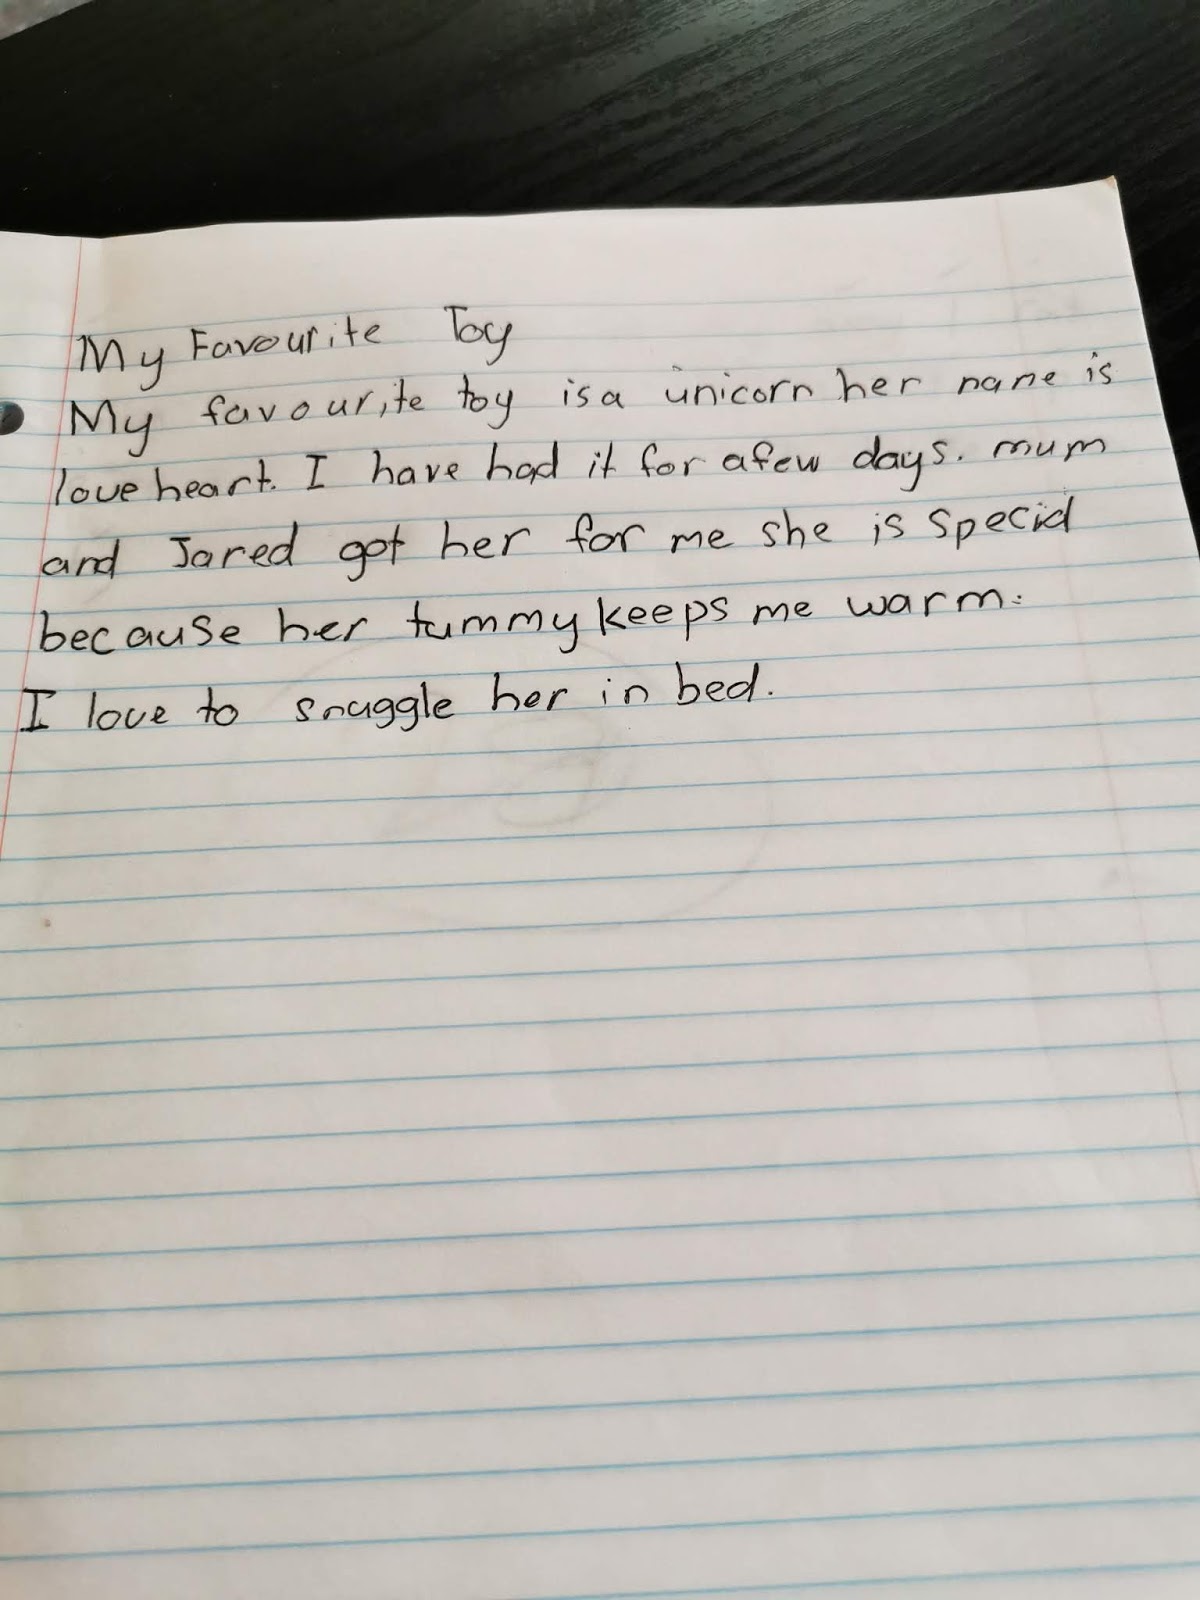 My Favourite Toy
My favourite toy is a unicorn her name is
love heart. I have had it for a few days. mum
and Jared got her for me she is special
because her tummy keeps me warm.
I love to snuggle her in bed.